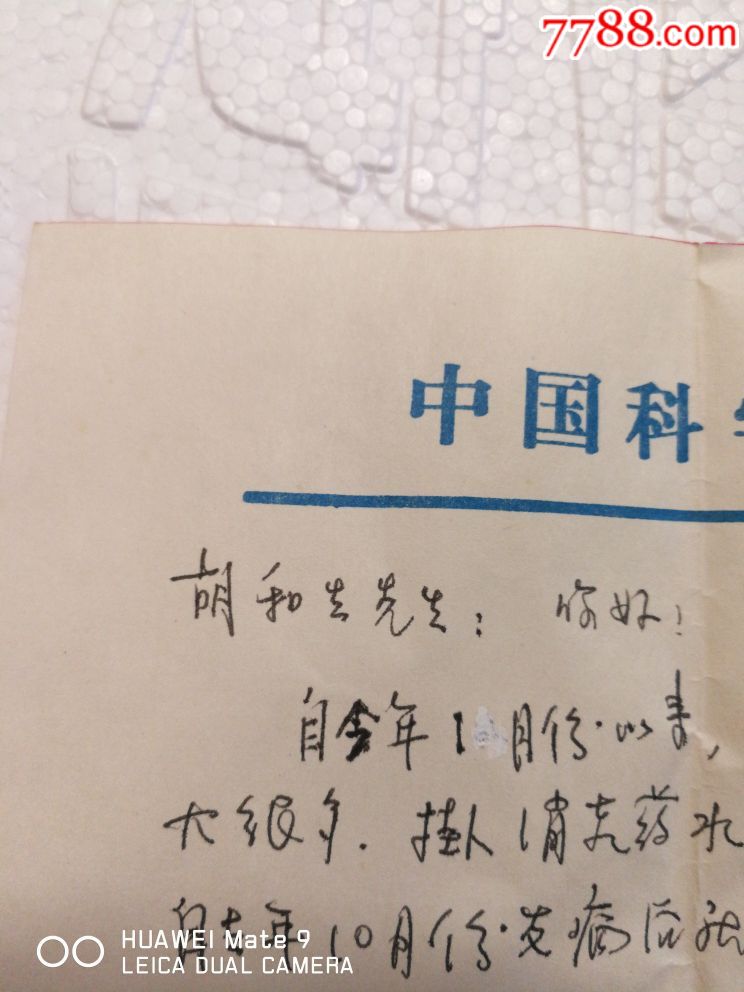 7788.com
中国科学
胡和生先生：你好！
自今年1月份以来，
大很多．挂人消炎药水
自去年10月份发病后就
HUAWEI Mate 9
LEICA DUAL CAMERA